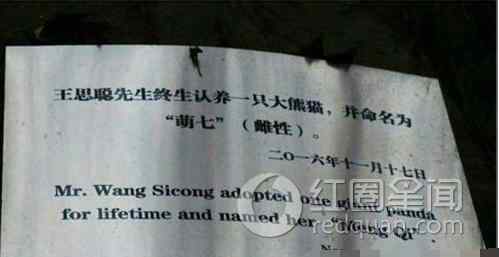 王思聪先生终生认养一只大熊猫，并命名为
“萌七”（雌性）。
二〇一六年十一月十七日
Mr. Wang Sicong adopted one giant panda
for lifetime and named her "Meng Qi"
红圈星闻
redquan.com